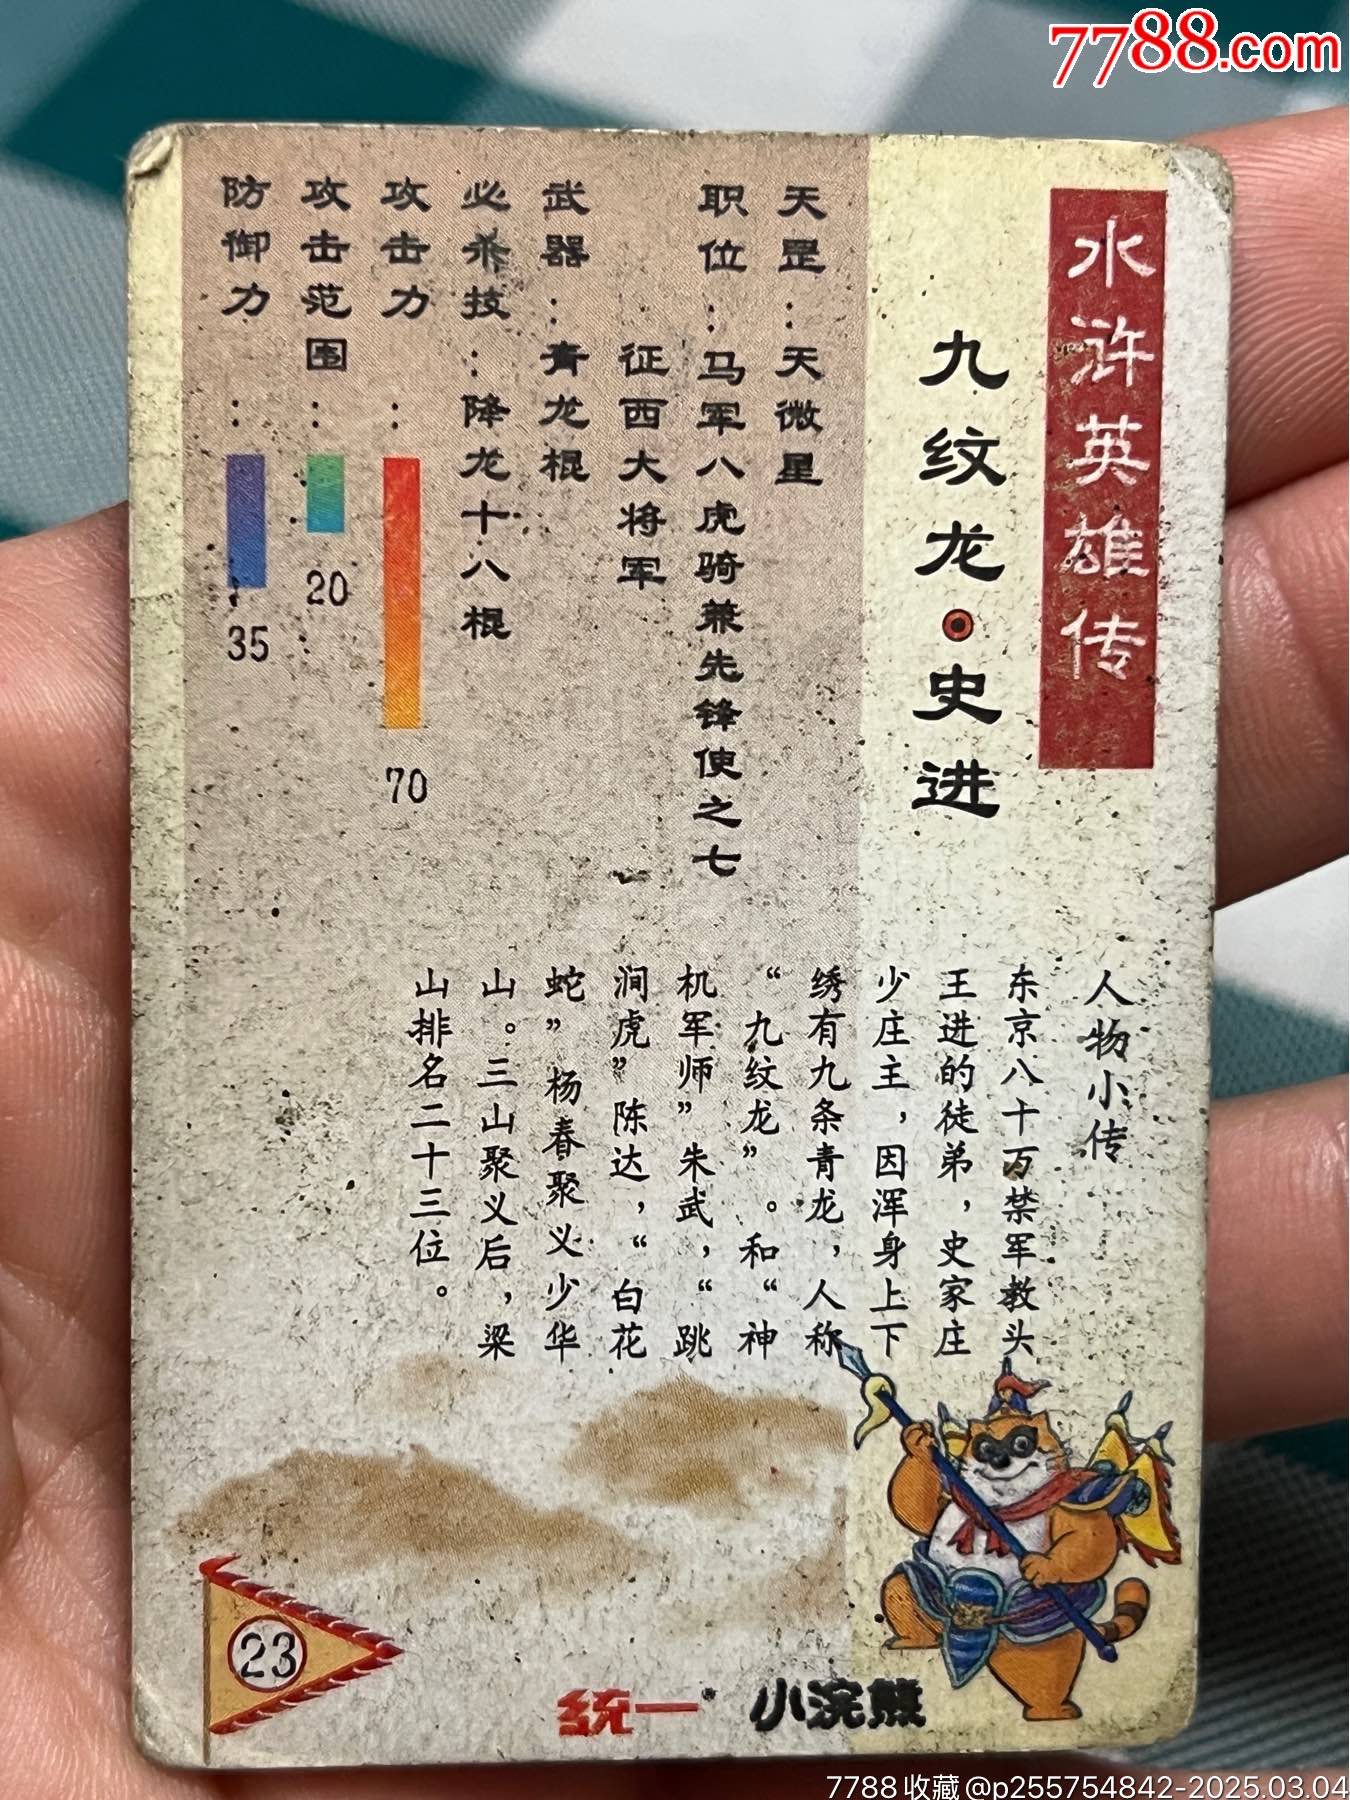 7788.com
水浒英雄传
九纹龙·史进
天罡：天微星
职位：马军八虎骑兼先锋使之七
征西大将军
武器：青龙棍
必杀技：降龙十八棍
攻击力：70
攻击范围：20
防御力：35
人物小传
东京八十万禁军教头
王进的徒弟，史家庄
少庄主，因浑身上下
绣有九条青龙，人称
“九纹龙”。和“神
机军师”朱武，“跳
涧虎”陈达，“白花
蛇”杨春聚义少华
山。三山聚义后，梁
山排名二十三位。
23
统一 小浣熊
7788收藏@p255754842-2025.03.04